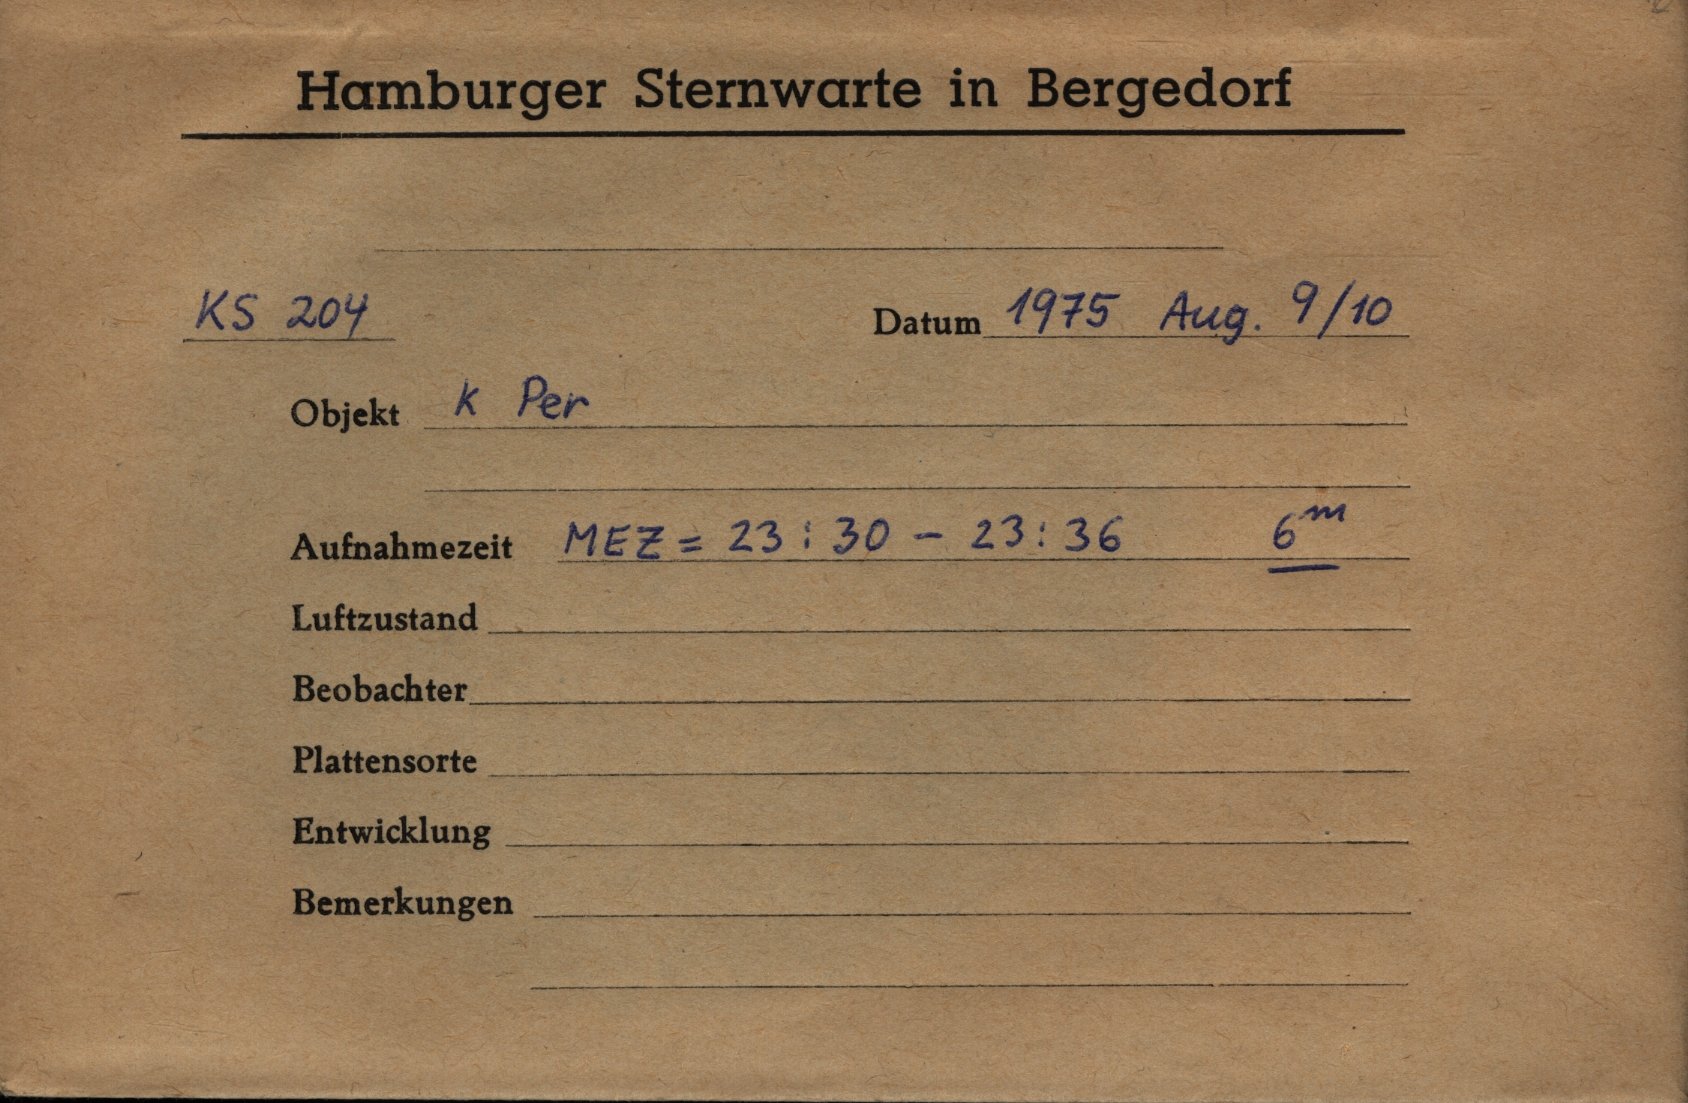 Hamburger Sternwarte in Bergedorf
KS 204
Datum 1975 Aug. 9/10
Objekt κ Per
Aufnahmezeit MEZ = 23:30 – 23:36 6ᵐ
Luftzustand
Beobachter
Plattensorte
Entwicklung
Bemerkungen